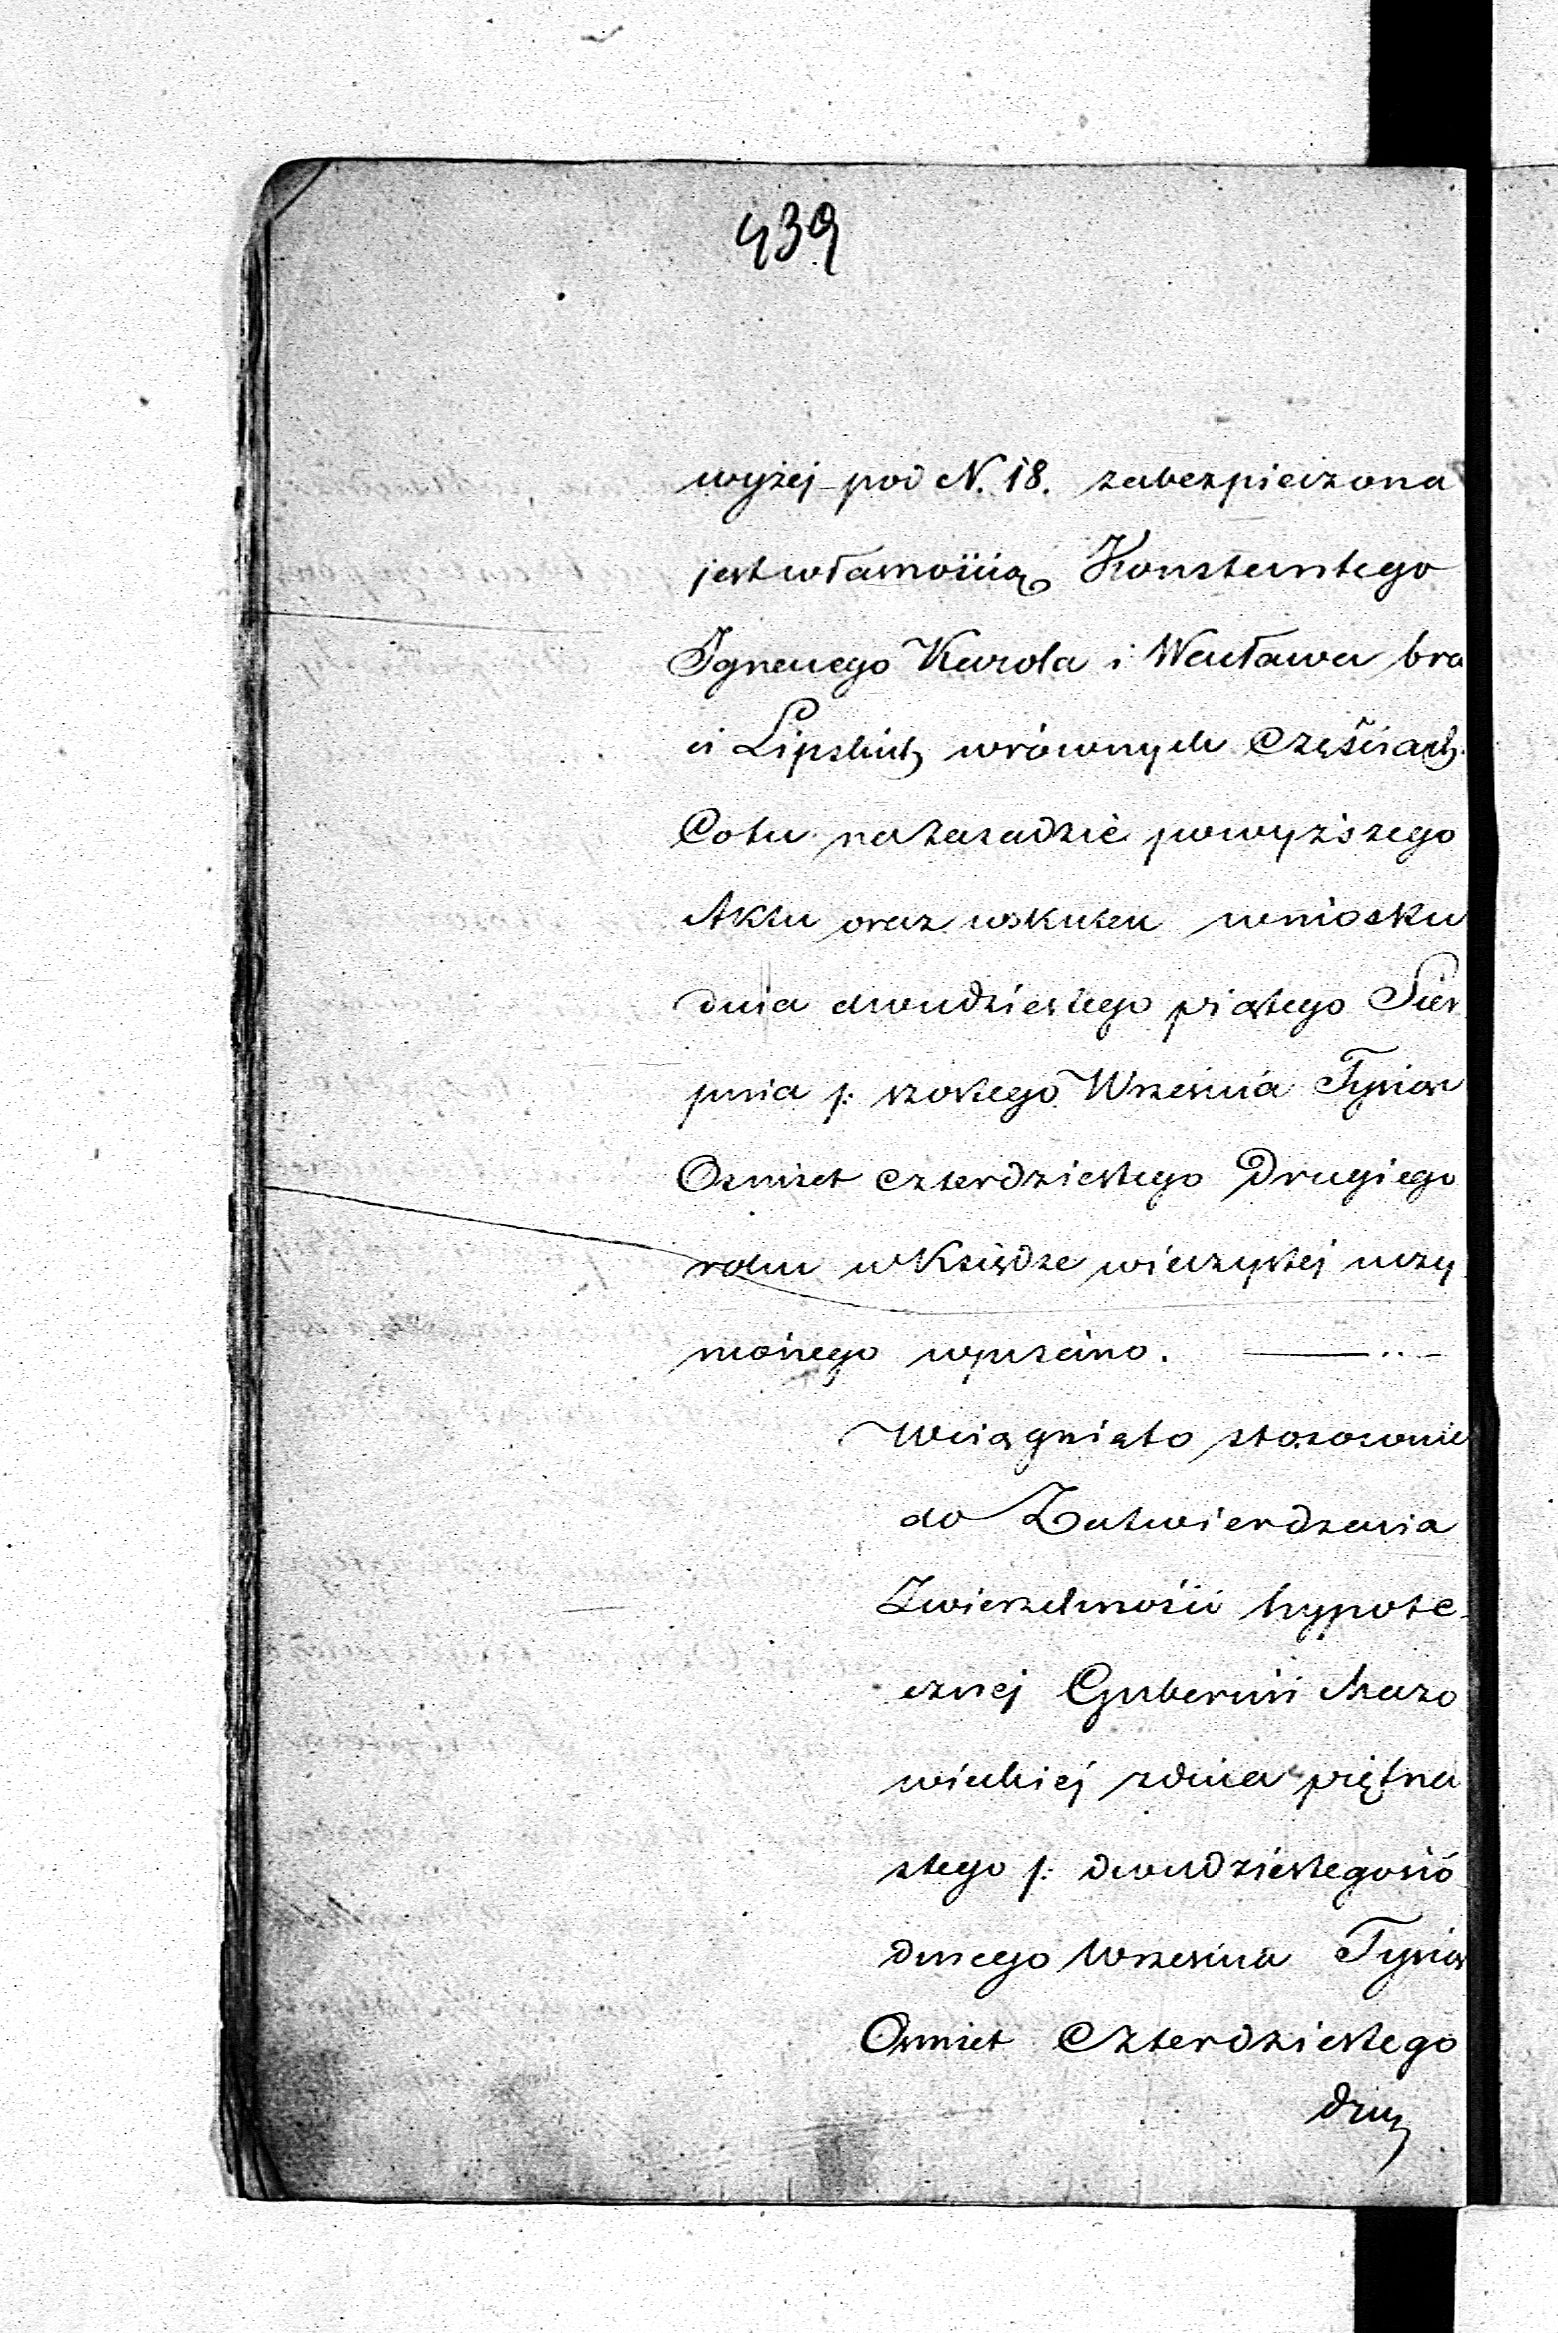 439
wyżej pod N. 18. zabezpieczona
jest własnością Konstantego
Ignacego Karola i Wacława bra
ci Lipskich w równych Częściach
Co tu na zasadzie powyższego
Aktu oraz wskutek wniosku
dnia dwudziestego piątego Sier
pnia /: szóstego Września Tysiąc
Osmset czterdziestego Drugiego
roku w Księdze wieczystej uczy
nionego wpisano.
Wciągnięto stosownie
do Zatwierdzenia
Zwierzchności hypote-
cznej Gubernii Mazo
wieckiej z dnia piętna
stego /: dwudziestego sió
dmego Września Tysiąc
Osmset Czterdziestego
drug